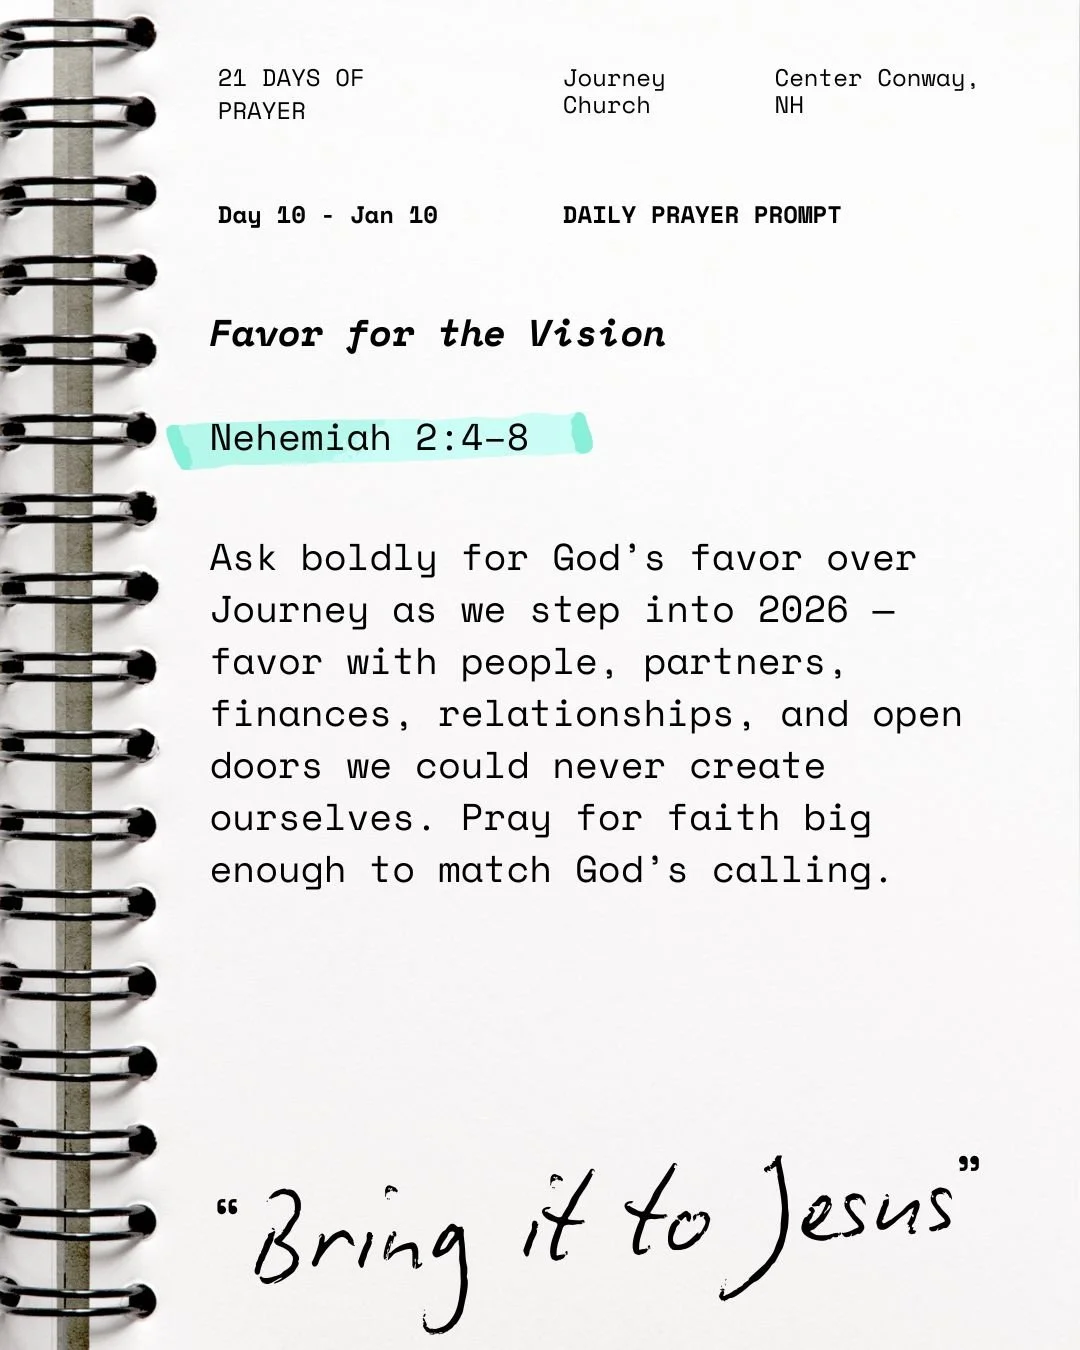 21 DAYS OF
PRAYER
Journey
Church
Center Conway,
NH
Day 10 - Jan 10
DAILY PRAYER PROMPT
Favor for the Vision
Nehemiah 2:4–8
Ask boldly for God’s favor over
Journey as we step into 2026 —
favor with people, partners,
finances, relationships, and open
doors we could never create
ourselves. Pray for faith big
enough to match God’s calling.
“Bring it to Jesus”